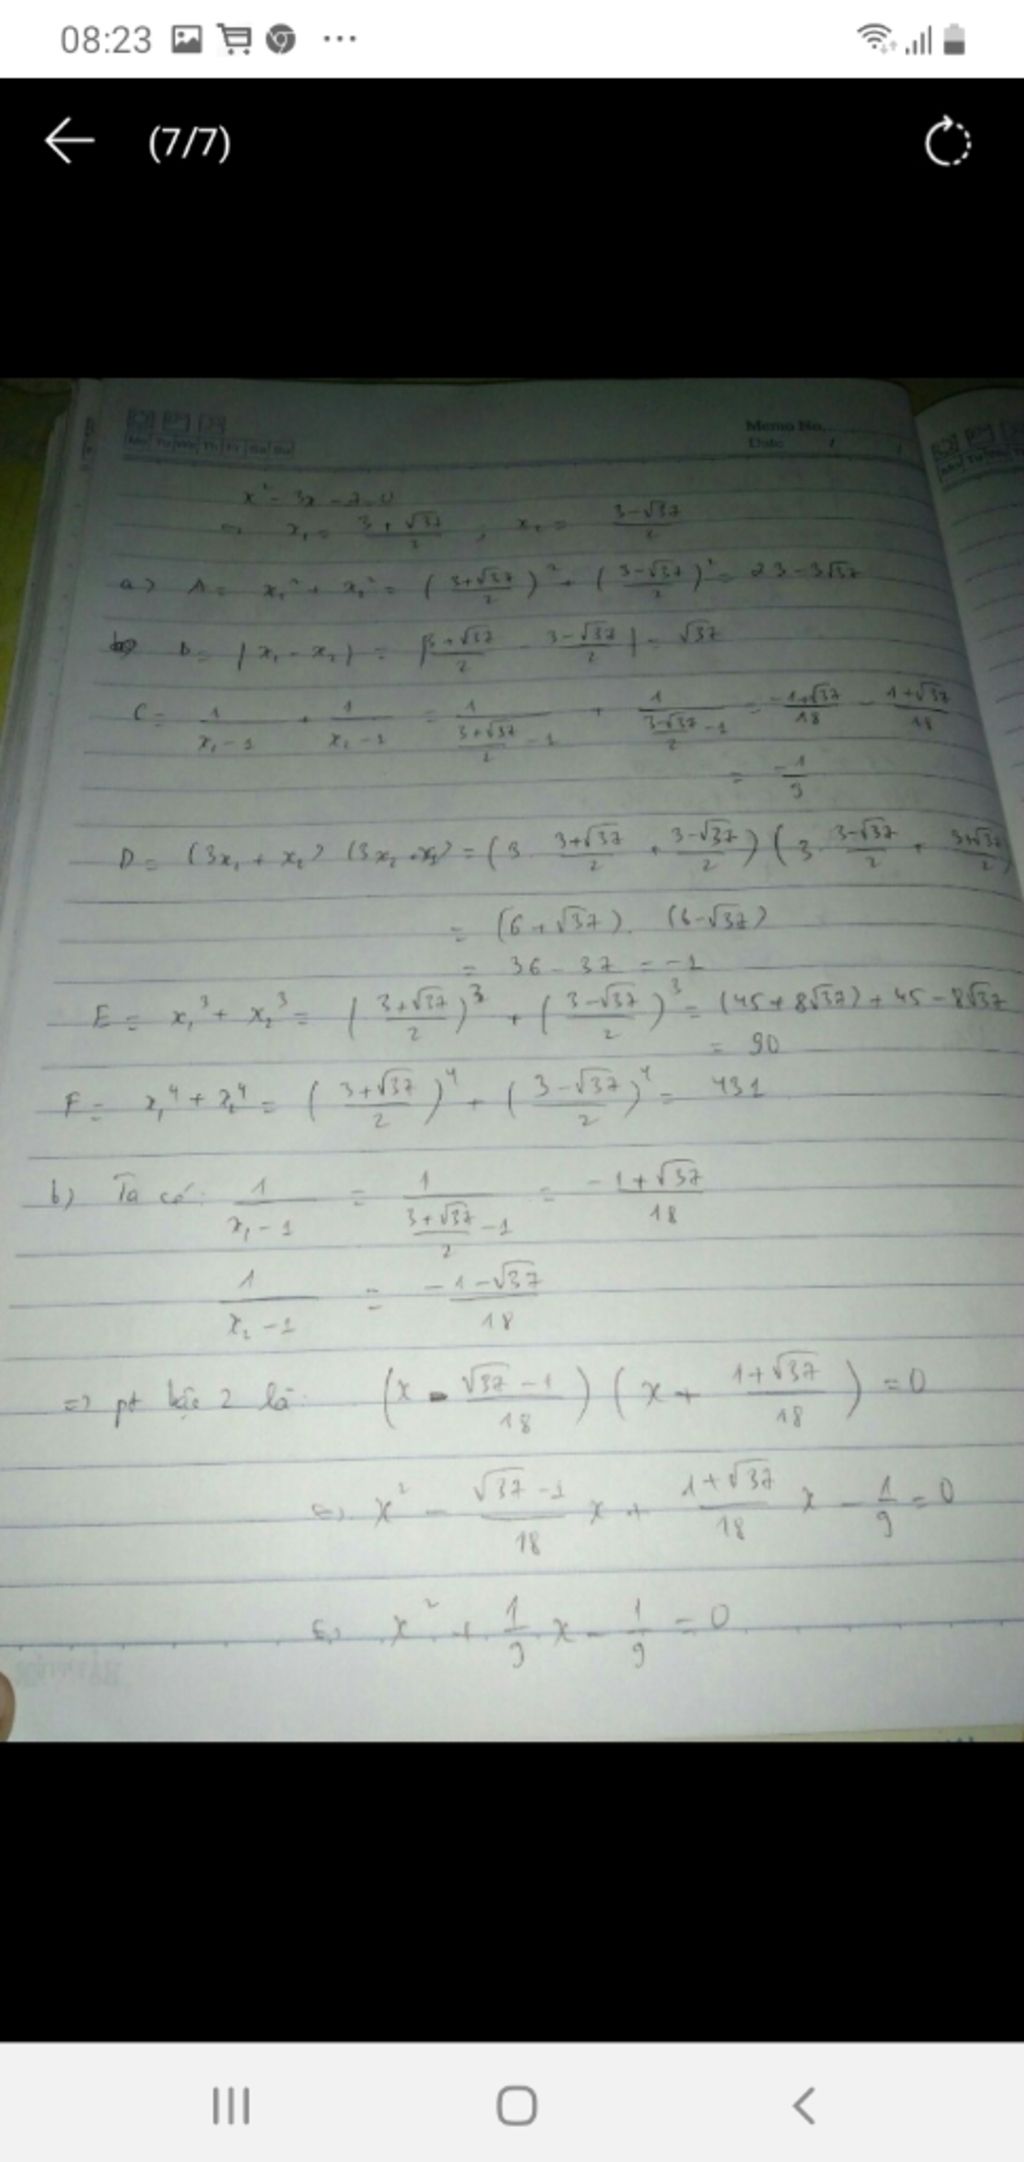 08:23
(7/7)
Memo No.
Date / /
x² - 3x - 7 = 0
=> x₁ = (3+√37)/2 ; x₂ = (3-√37)/2
a) A = x₁² + x₂² = ((3+√37)/2)² + ((3-√37)/2)² = 23-3√37
B = |x₁ - x₂| = |(3+√37)/2 - (3-√37)/2| = √37
C = 1/(x₁-1) + 1/(x₂-1) = 1/((3+√37)/2 - 1) + 1/((3-√37)/2 - 1) = (-1+√37)/18 - (1+√37)/18
= -1/9
D = (3x₁ + x₂) (3x₂ + x₁) = (3. (3+√37)/2 + (3-√37)/2) (3. (3-√37)/2 + (3+√37)/2)
= (6+√37). (6-√37)
= 36 - 37 = -1
E = x₁³ + x₂³ = ((3+√37)/2)³ + ((3-√37)/2)³ = (45+8√37) + 45 - 8√37
= 90
F = x₁⁴ + x₂⁴ = ((3+√37)/2)⁴ + ((3-√37)/2)⁴ = 431
b) Ta có: 1/(x₁-1) = 1/((3+√37)/2 - 1) = (-1+√37)/18
1/(x₂-1) = (-1-√37)/18
=> pt bậc 2 là: (x - (√37-1)/18) (x + (1+√37)/18) = 0
<=> x² - (√37-1)/18 x + (1+√37)/18 x - 1/9 = 0
<=> x² + 1/9 x - 1/9 = 0